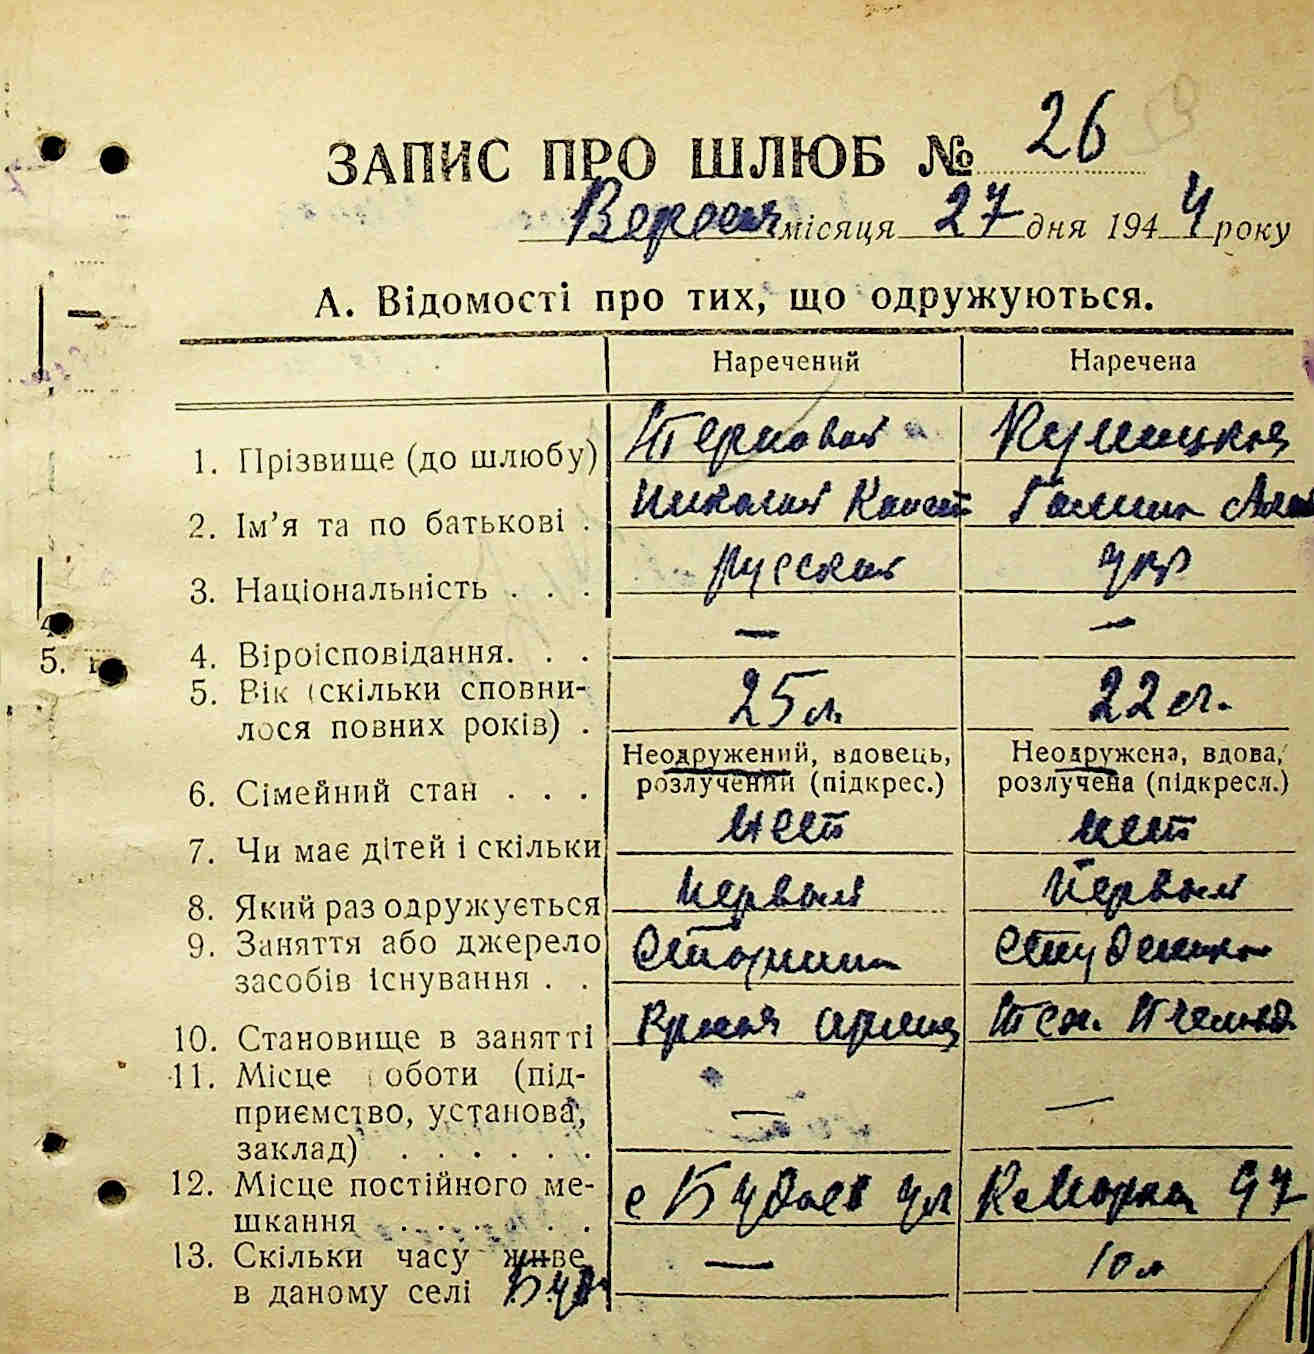 ЗАПИС ПРО ШЛЮБ № 26
Вересня місяця 27 дня 1944 року
А. Відомості про тих, що одружуються.
Наречений Наречена
1. Прізвище (до шлюбу) Терновой
2. Ім’я та по батькові . Николай Конст Галина
3. Національність . . . русский укр
4. Віроісповідання. . . — —
5. Вік (скільки сповни-
лося повних років) . 25 л. 22 л.
Неодружений, вдовець, Неодружена, вдова,
розлучений (підкрес.) розлучена (підкресл.)
6. Сімейний стан . . .
7. Чи має дітей і скільки нет нет
8. Який раз одружується Первый Первый
9. Заняття або джерело
засобів існування . . Старшина Студентка
10. Становище в занятті Красная Армия Тех.
11. Місце роботи (під-
приємство, установа,
заклад) . . . . . . — —
12. Місце постійного ме-
шкання . . . . . . с Будаев ул К Маркса 97
13. Скільки часу живе
в даному селі — 10 л
5.